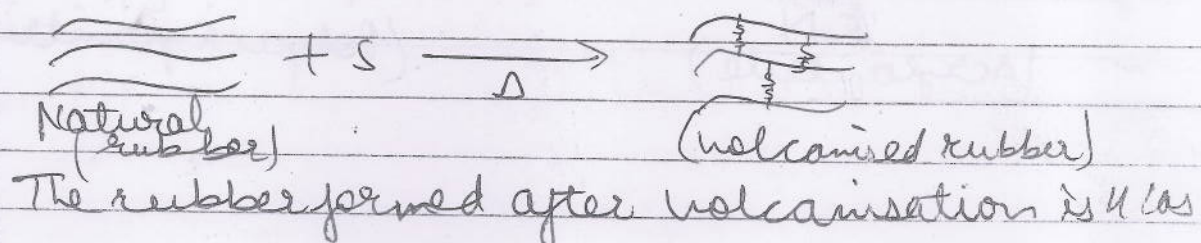 + S
Δ
Natural
(rubber)
(volcanised rubber)
The rubber formed after volcanisation is